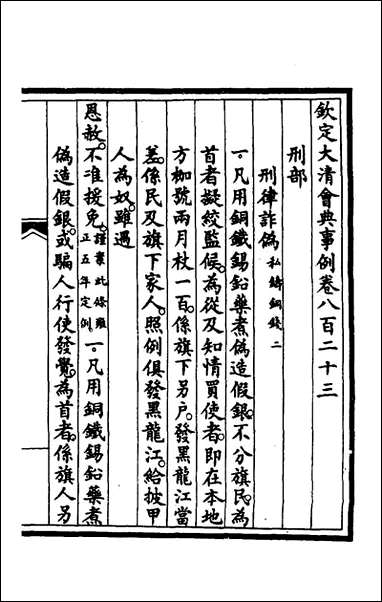 欽定大清會典事例卷八百二十三
刑部
刑律詐偽私鑄銅錢二
一。凡用銅鐵錫鉛藥煮偽造假銀。不分旗民。為
首者擬絞監候。為從及知情買使者。即在本地
方枷號兩月杖一百。係旗下另戶。發黑龍江當
差。係民及旗下家人。照例俱發黑龍江。給披甲
人為奴。雖遇
恩赦。不准援免。謹案此條雍正五年定例。一。凡用銅鐵錫鉛藥煮
偽造假銀。或騙人行使發覺。為首者。係旗人另